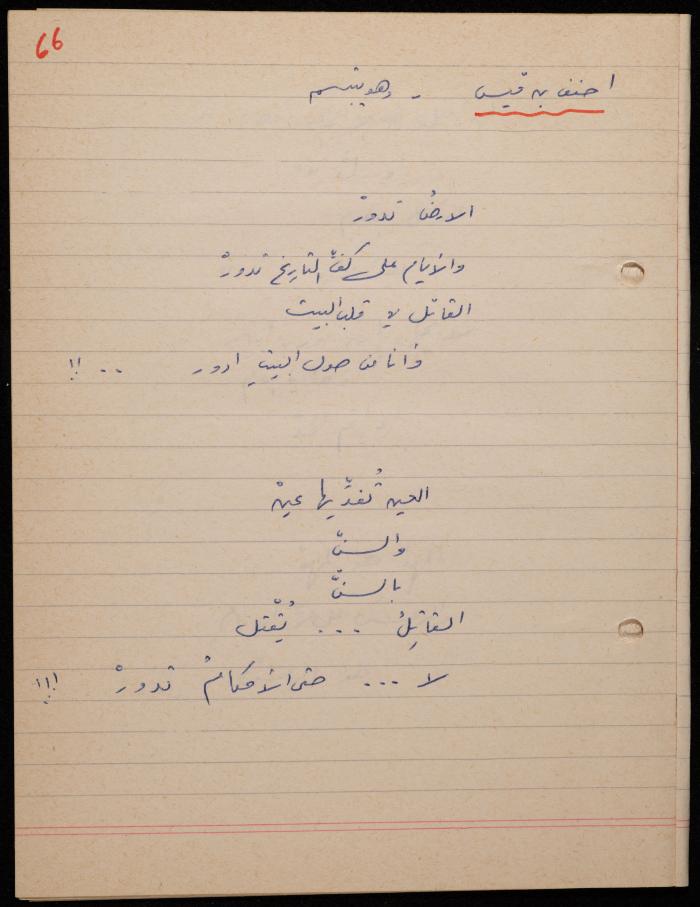 66
احنف بن قيس - وهو يبتسم
الارضُ تدورْ
والأيام على كفّ التاريخ تدورْ
القاتل في قلب البيت
وأنا من حول البيتِ ادور .. !!
العين تُفدّيها عينْ
والسنّ
بالسنّ
القاتِلُ ... يُقْتل
لا ... حتى الأحكامُ تدورْ !!!